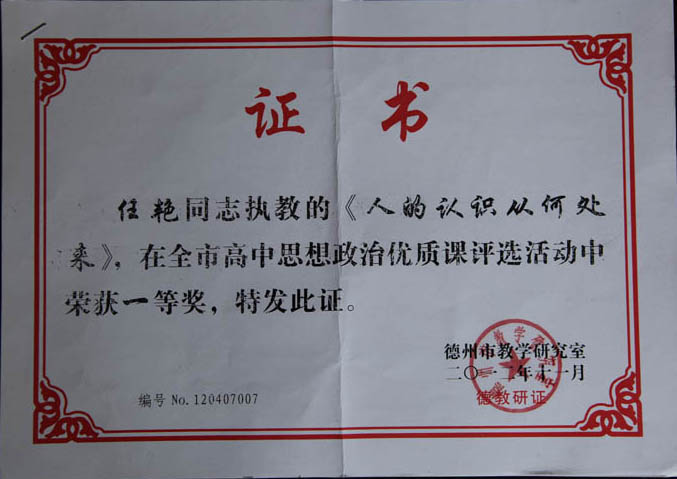 证书
任艳同志执教的《人的认识从何处
来》，在全市高中思想政治优质课评选活动中
荣获一等奖，特发此证。
德州市教学研究室
二〇一二年十一月
德教研证
编号 No. 120407007